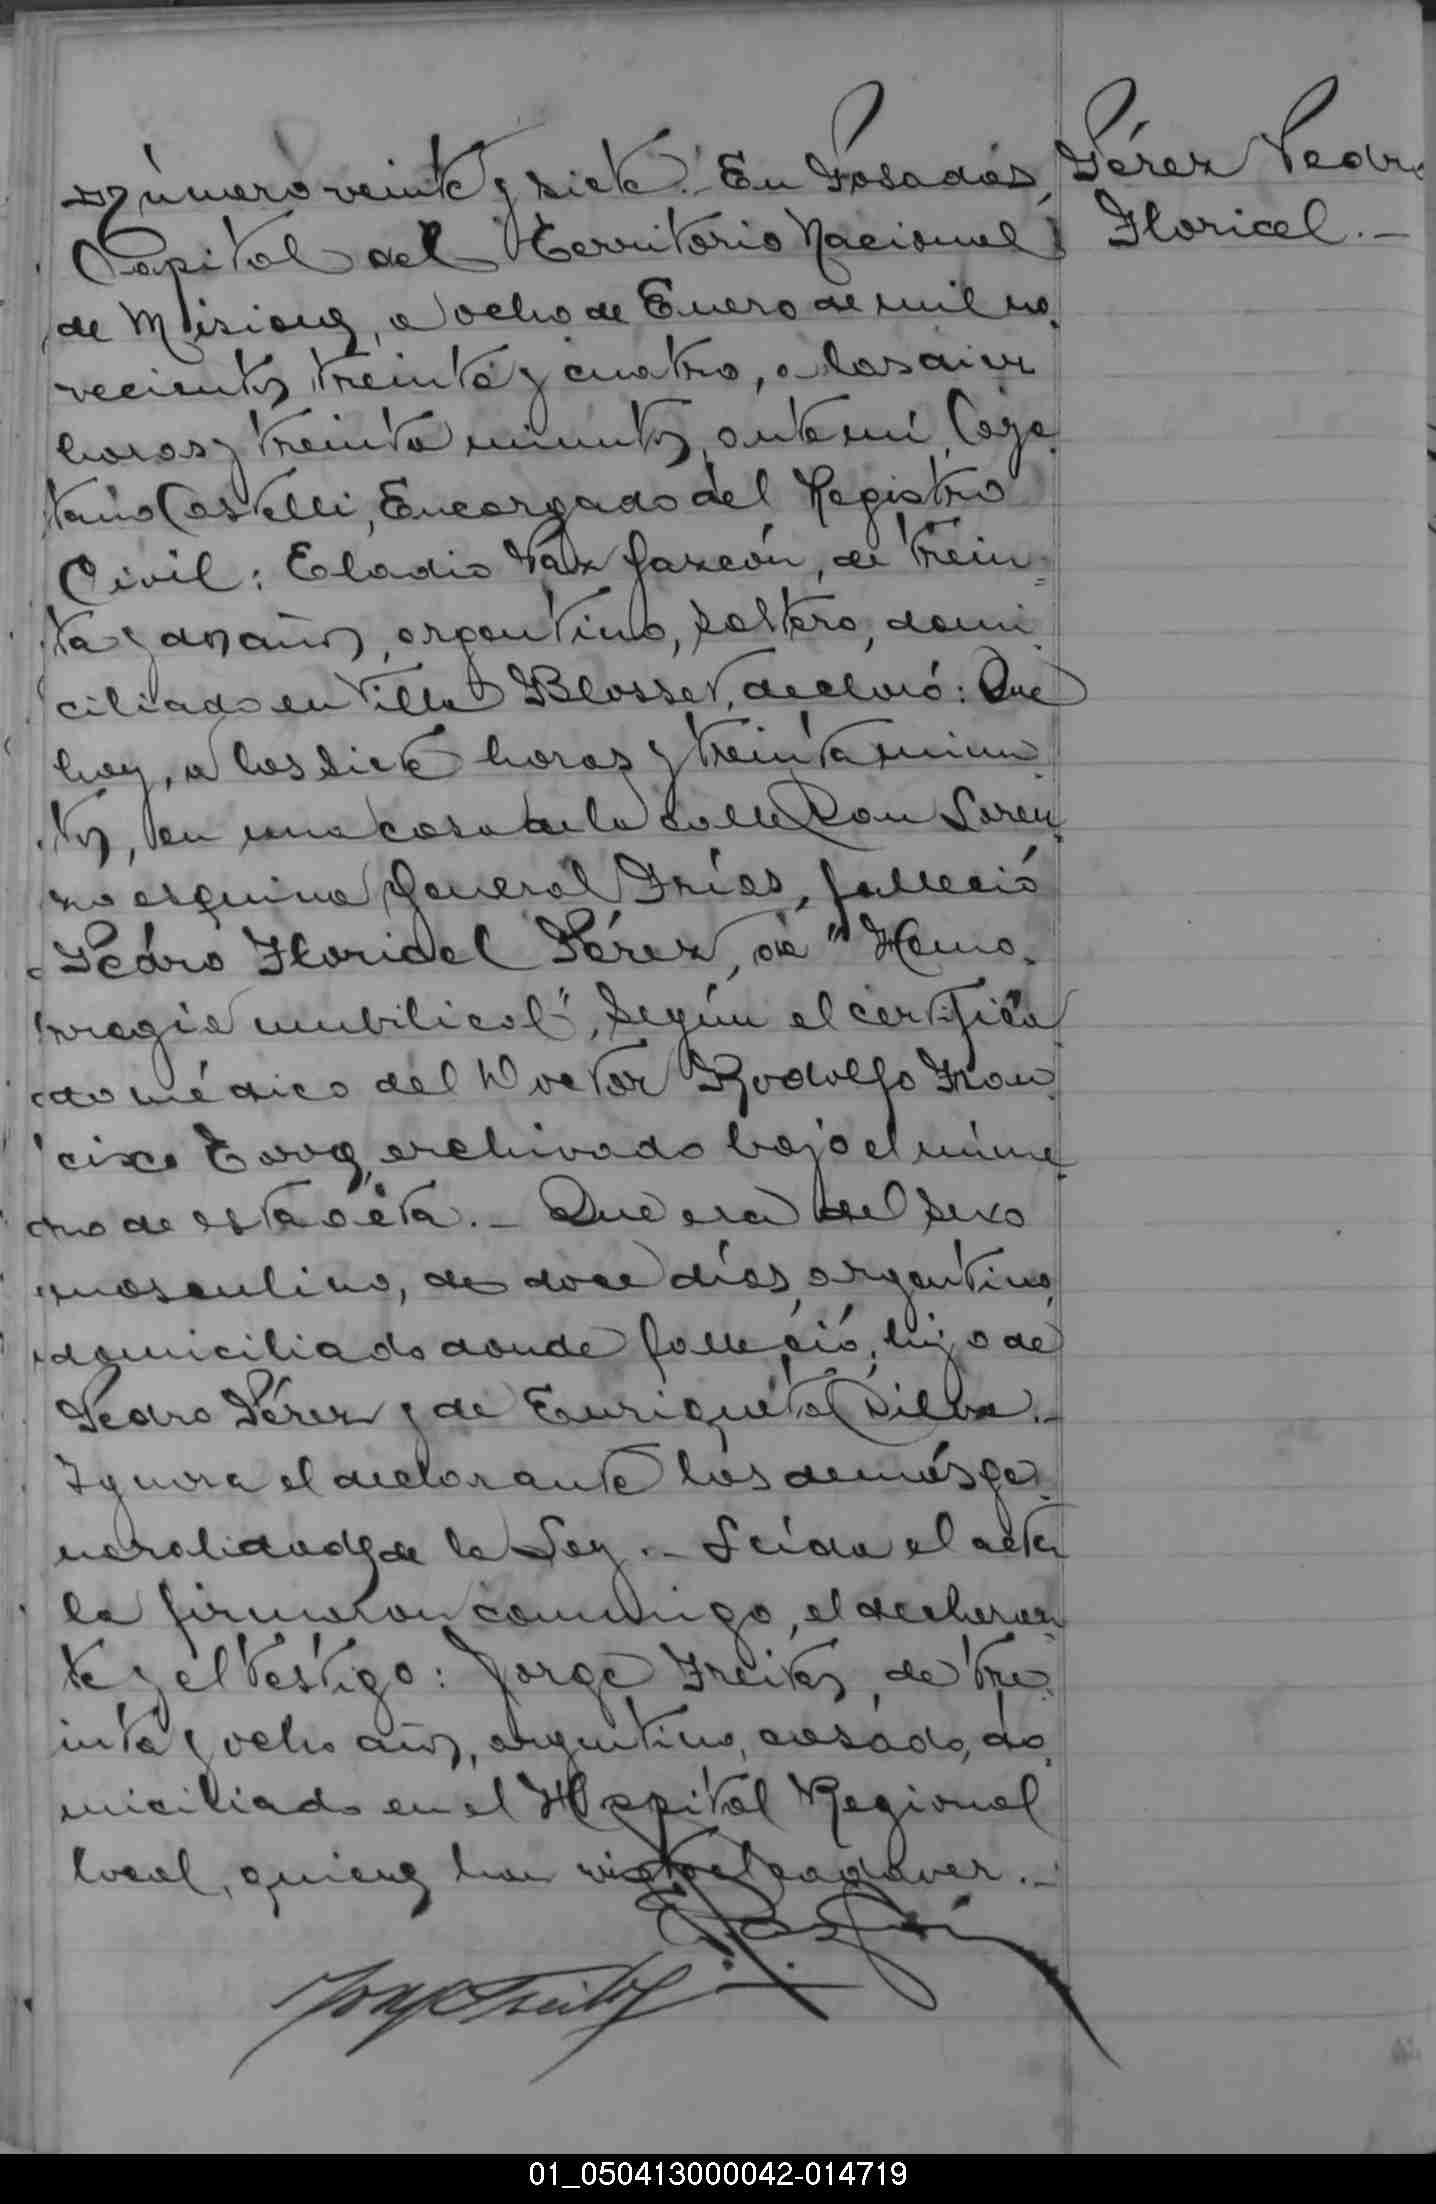 Número veinte y siete.- En Posadas,
Capital del Territorio Nacional
de Misiones, a ocho de Enero de mil no
vecientos treinta y cuatro, a las diez
horas y treinta minutos, ante mí, Caye
tano Castelli, Encargado del Registro
Civil: Eladio Paz Garzón, de trein=
ta y dos años, argentino, soltero, domi
ciliado en Villa Blosset, declaró: Que
hoy, a las siete horas y treinta minu
tos, en una casa de la calle San Loren
zo esquina General Frías, falleció
Pedro Floricel Pérez, de "Hemo
rragia umbilical", según el certifica
do médico del Doctor Rodolfo Fran
cisco archivado bajo el núme
ro de esta acta.- Que era del sexo
masculino, de doce días, argentino,
domiciliado donde falleció, hijo de
Pedro Pérez y de Enriqueta Silva.-
Ignora el declarante las demás ge
neralidades de la Ley.- Leída el acta
la firmaron conmigo, el declaran
te y el testigo: Jorge Freites, de tre
inta y ocho años, argentino, casado, do
miciliado en el Hospital Regional
local, quienes han visto el cadáver.-
Jorge Freites
Pérez Pedro
Floricel.-
01_050413000042-014719